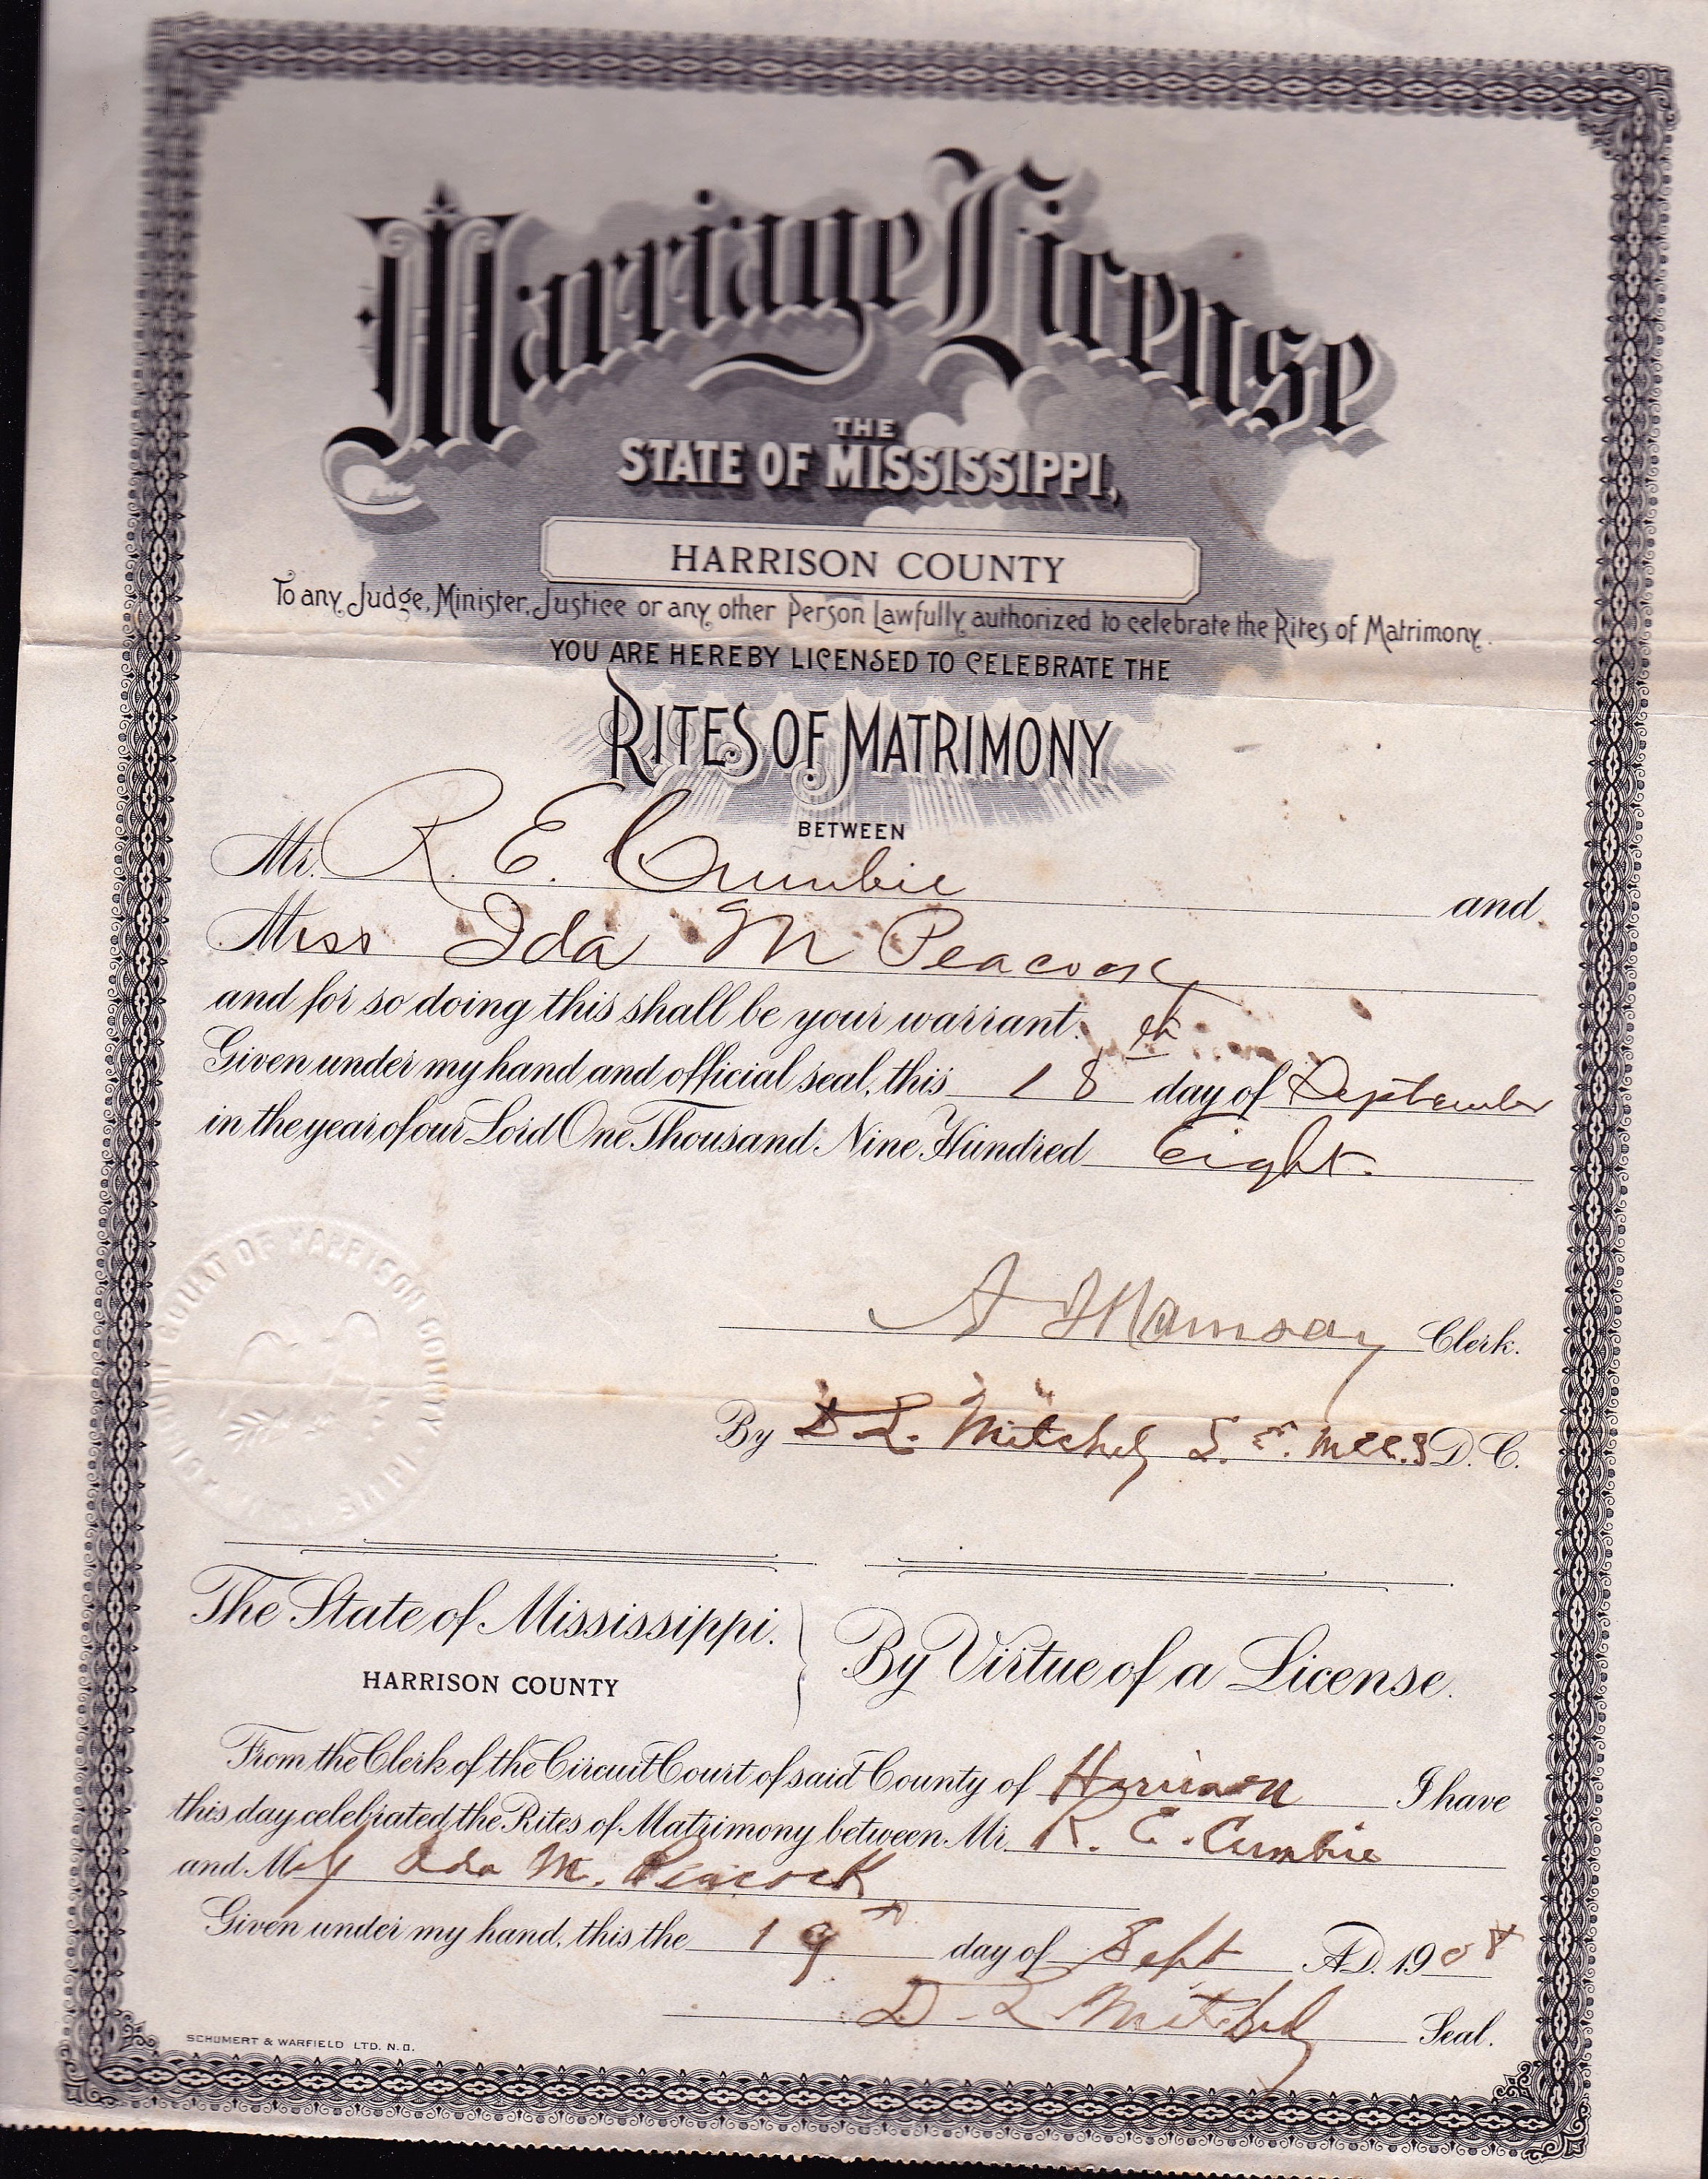 Marriage License
THE
STATE OF MISSISSIPPI,
HARRISON COUNTY
To any Judge, Minister, Justice or any other Person Lawfully authorized to celebrate the Rites of Matrimony.
YOU ARE HEREBY LICENSED TO CELEBRATE THE
RITES OF MATRIMONY
BETWEEN
Mr. R. E. Crumbie and
Miss Ida M Peacock
and for so doing this shall be your warrant.
Given under my hand and official seal, this 18th day of September
in the year of our Lord One Thousand Nine Hundred Eight.
Clerk.
By D. L. Mitchel D. C.
COURT OF HARRISON COUNTY
The State of Mississippi.
HARRISON COUNTY
By Virtue of a License.
From the Clerk of the Circuit Court of said County of Harrison I have
this day celebrated the Rites of Matrimony between Mr. R. E. Cumbie
and Ida M. Peacock
Given under my hand, this the 19th day of Sept A.D. 1908
D. L. Mitchel Seal.
SCHUMERT & WARFIELD LTD. N.O.